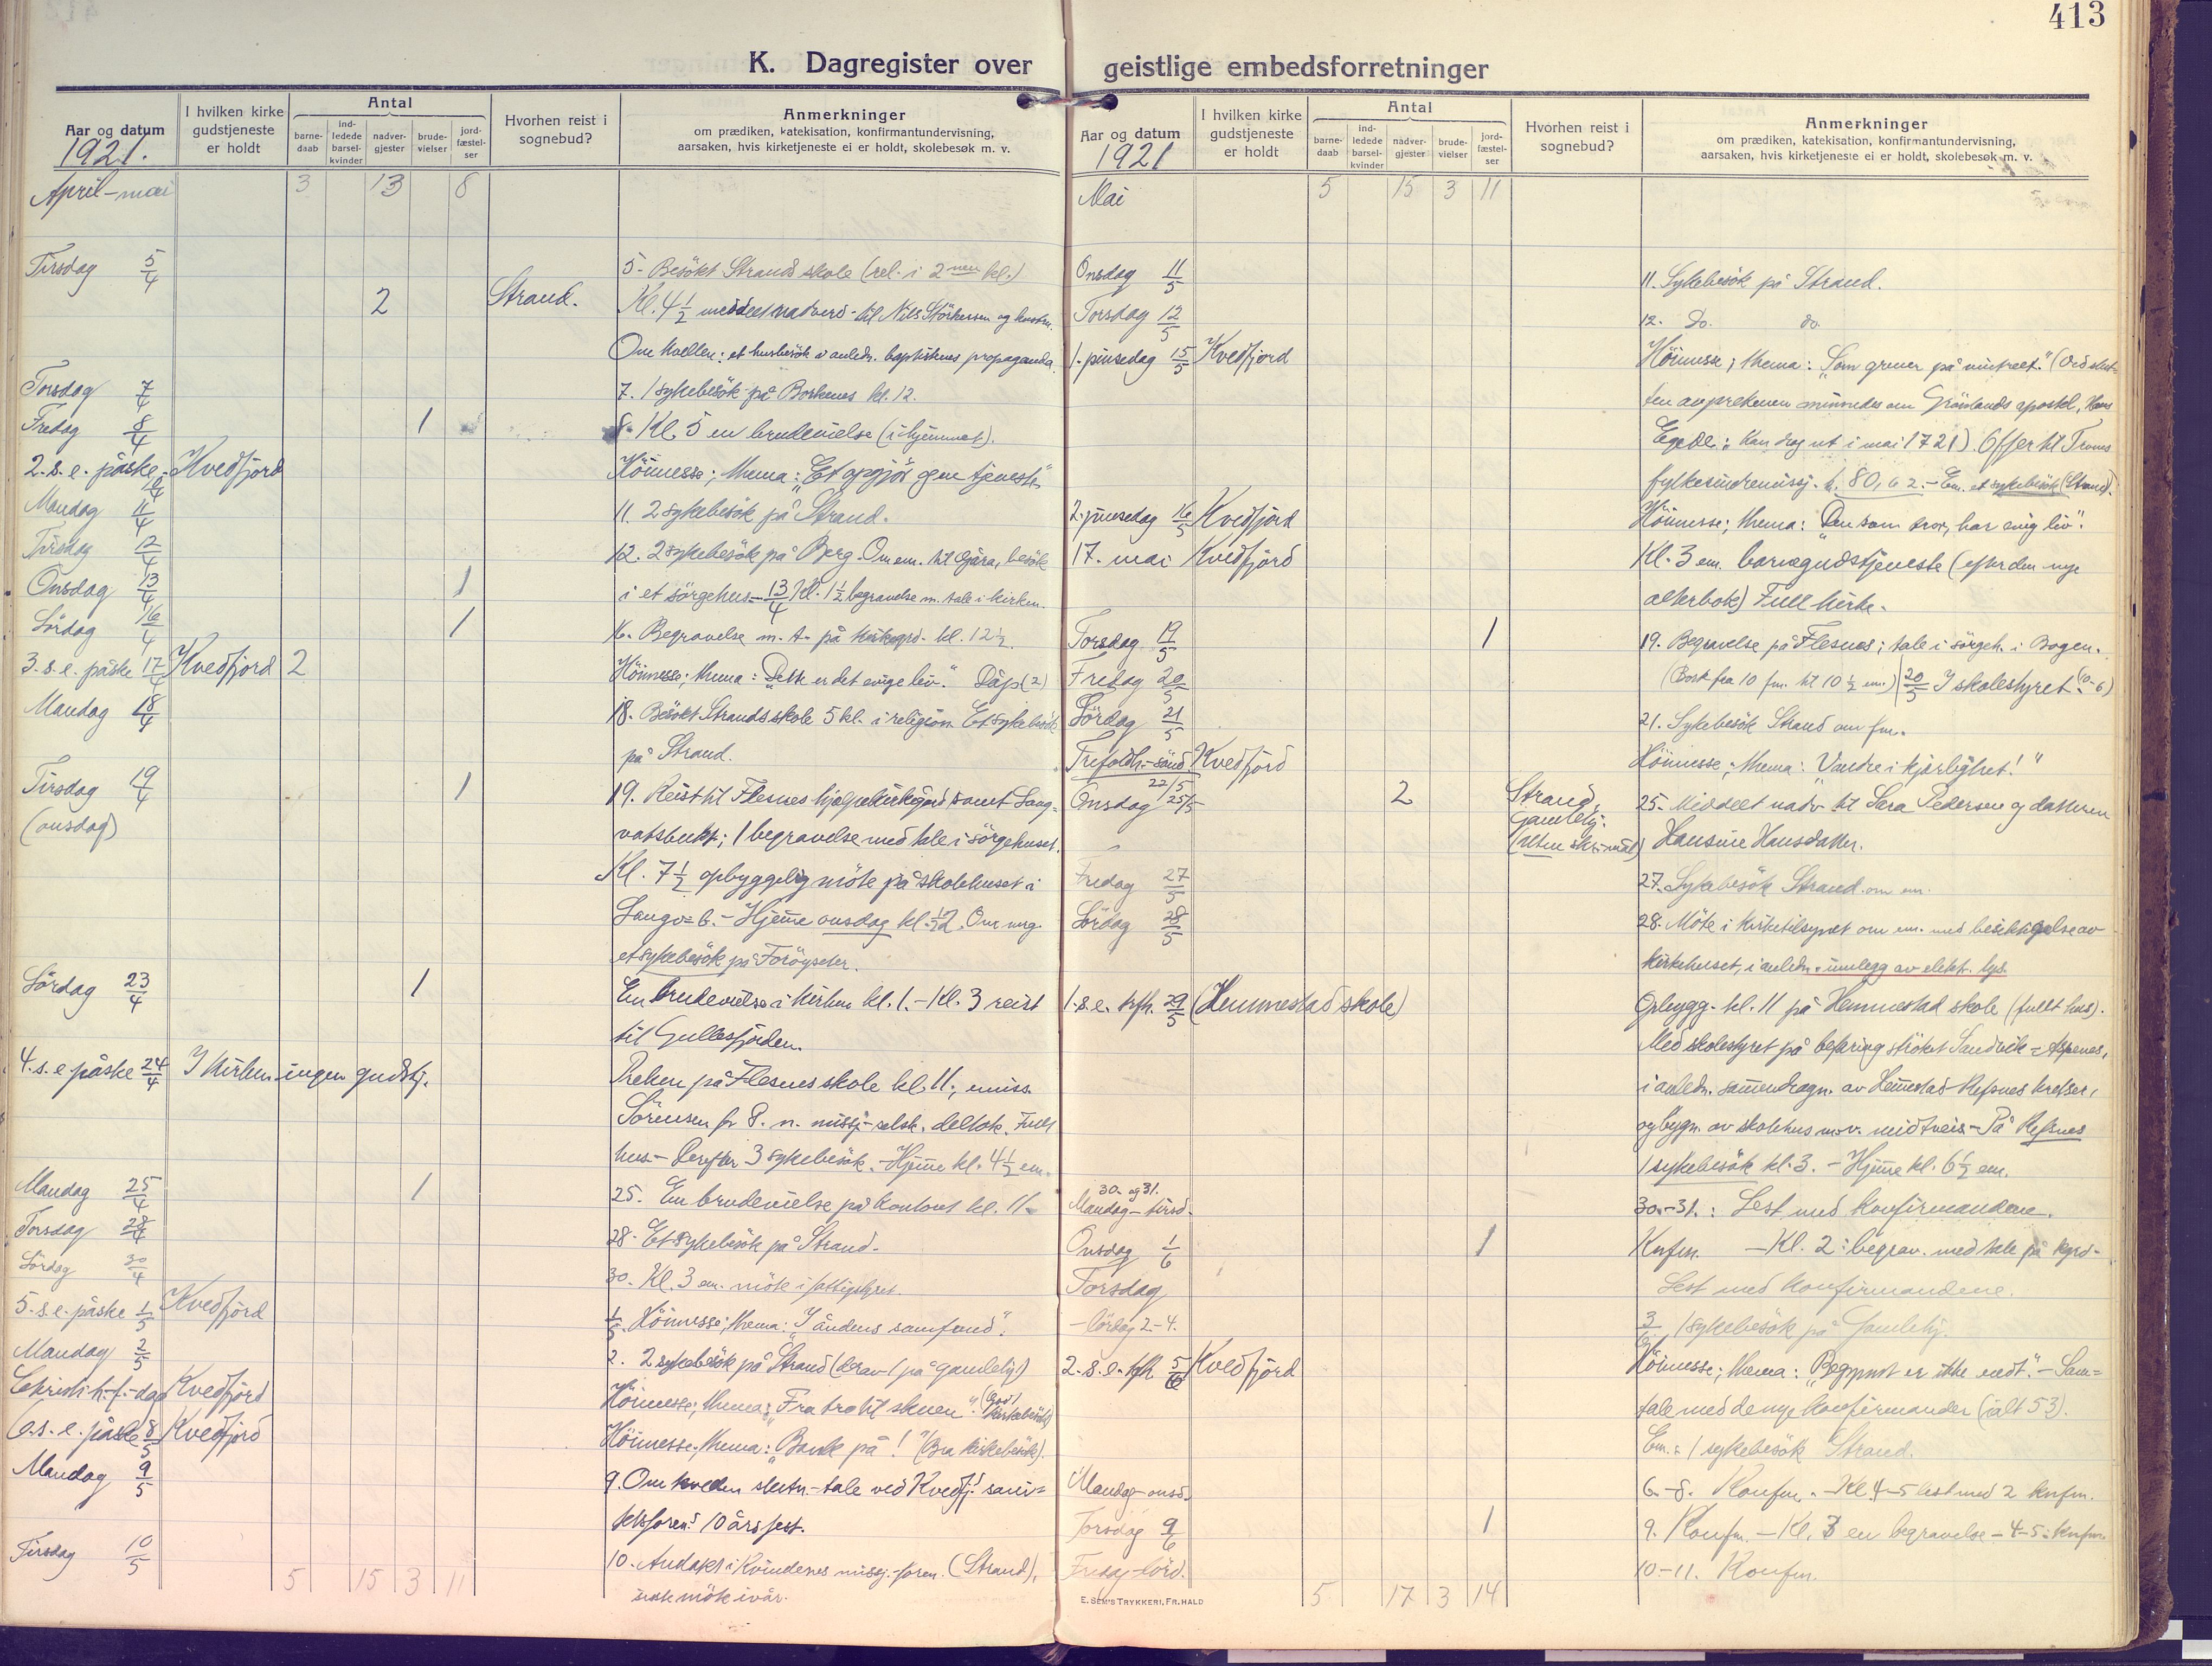 413
K. Dagregister over geistlige embedsforretninger
Aar og datum
1921.
I hvilken kirke gudstjeneste er holdt
Antal
barnedaab
indledede barselkvinder
nadvergjester
brudevielser
jordfæstelser
Hvorhen reist i sognebud?
Anmerkninger
om prædiken, katekisation, konfirmantundervisning,
aarsaken, hvis kirketjeneste ei er holdt, skolebesøk m. v.
April-mai 3 13 8
Tirsdag 5/4 5- Besökt Strands skole (rel. i 2nen kl.)
2 Strand. Kl. 4½ meddelt nadverd til Nils Störkersen og hustru.
Om kvellen: et husbesök i anledn. baptistenes propaganda.
Torsdag 7/4 7. 1 sykebesök på Borkenes kl. 12.
Fredag 8/4 1 8. Kl. 5 en brudevielse (i hjemmet).
2. s. e. påske 10/4 Kvedfjord Höimesse; thema: "Et opgjör og en tjeneste"
Mandag 11/4 11. 2 sykebesök på Strand.
Tirsdag 12/4 12. 2 sykebesök på Berg. Om em. til Gjära, besök
Onsdag 13/4 1 i et sörgehus. 13/4 Kl. 1½ begravelse m. tale i kirken.
Lördag 16/4 1 16. Begravelse m. t. på kirkegrd. kl. 12½.
3. s. e. påske 17/4 Kvedfjord 2 Höimesse; thema: "Dette er det evige liv." Dåp (2)
Mandag 18/4 18. Besökt Strands skole 5 kl. i religion. Et sykebesök
på Strand.
Tirsdag 19/4 1 19. Reist til Flesnes hjælpekirkegård samt Lang=
(onsdag) vatsbukt; 1 begravelse med tale i sörgehuset.
Kl. 7½ opbyggelig möte på skolehuset i
Langv=b. - Hjemme onsdag kl. ½2. Om mrg.
et sykebesök på Föröyseter.
Lördag 23/4 1 En brudevielse i kirken kl. 1. - Kl. 3 reist
til Gullesfjorden.
4. s. e. påske 24/4 I kirken ingen gudstj. Preken på Flesnes skole kl. 11; emiss.
Sörensen fr. d. n. missj-selsk. deltok. Fullt
hus - Derefter 3 sykebesök. - Hjemme kl. 4½ em.
Mandag 25/4 1 25. En brudevielse på kontoret kl. 11.
Torsdag 28/4 28. Et sykebesök på Strand.
Lördag 30/4 30. Kl. 3 em. möte i fattigstyret.
5. s. e. påske 1/5 Kvedfjord 1/5. Höimesse; thema: "I åndens samfund".
Mandag 2/5 2. 2 sykebesök på Strand (derav 1 på gamlehj.)
Christi h.-f.-dag Kvedfjord Höimesse; thema: "Fra tro til skuen". (Godt kirkebesök)
6. s. e. påske 8/5 Kvedfjord Höimesse, thema: "Bank på!" (Bra kirkebesök).
Mandag 9/5 9. Om kvelden slutn.-tale ved Kvedfj. sani=
tetsforen.s 10 årsfest.
Tirsdag 10/5 10. Andakt i kvindenes missj.-foren. (Strand),
5 15 3 11 siste möte ivår.
Aar og datum
1921
I hvilken kirke gudstjeneste er holdt
Antal
barnedaab
indledede barselkvinder
nadvergjester
brudevielser
jordfæstelser
Hvorhen reist i sognebud?
Anmerkninger
om prædiken, katekisation, konfirmantundervisning,
aarsaken, hvis kirketjeneste ei er holdt, skolebesøk m. v.
Mai 5 15 3 11
Onsdag 11/5 11. Sykebesök på Strand.
Torsdag 12/5 12. Do. do.
1. pinsedag 15/5 Kvedfjord Höimesse; thema: "Som grener på vintreet." (Ved slut=
ten av prekenen mindedes om Grönlands apostel, Hans
Egede: han drog ut i mai 1721). Offer til Troms
fylkesindremissj. k. 80,62. - Em. et sykebesök (Strand).
2. pinsedag 16/5 Kvedfjord Höimesse; thema: "Den som tror, har evig liv".
17. mai Kvedfjord Kl. 3 em. barnegudstjeneste (efter den nye
alterbok) Full kirke.
Torsdag 19/5 1 19. Begravelse på Flesnes; tale i sörgeh. i Bogen.
Fredag 20/5 (Bort fra 10 fm. til 10½ em.) 20/5 I skolestyret (10-6)
Lördag 21/5 21. Sykebesök Strand om fm.
Trefoldh.-sönd. 22/5 Kvedfjord Höimesse; thema: "Vandre i kjærlighet!"
Onsdag 25/5 2 Strand, Gamlehj. 25. Meddelt nadv. til Sara Pedersen og datteren
(uten skr.mål) Hansine Hansdatter.
Fredag 27/5 27. Sykebesök Strand om em.
Lördag 28/5 28. Möte i kirketilsynet om em. med besiktigelse av
kirkehuset, i anledn. innlegg av elektr. lys.
1. s. e. trfh. 29/5 (Hemmestad skole) Opbygg. kl. 11 på Hemmestad skole (fullt hus).
Med skolestyret på befaring ströket Sandvik - Aspenes,
i anledn. sammendragn. av Hemmestad-Refsnes kretser,
og bygn. av skolehus m.v. midtveis - På Refsnes
1 sykebesök kl. 3. - Hjemme kl. 6½ em.
30. og 31.
Mandag - tirsd. 30.-31.: Lest med konfirmandene.
Onsdag 1/6 1 Knfm. - Kl. 2: begrav. med tale på kgrd.
Torsdag Lest med konfirmandene.
- lördag 2.-4. 3/6 1 sykebesök på Gamlehj.
2. s. e. trfh. 5/6 Kvedfjord Höimesse; thema: "Begynnt er ikke endt." - Sam=
tale med de nye konfirmander (ialt 53).
Em.: 1 sykebesök Strand.
Mandag - onsd. 6.-8. Konfm. - Kl. 4-5 lest med 2 knfm.
Torsdag 9/6 1 9. Konfm. - Kl. 3 en begravelse - 4-5: knfm.
Fredag-lörd. 10-11. Konfm.
5 17 3 14
E. SEM'S TRYKKERI, FR.HALD